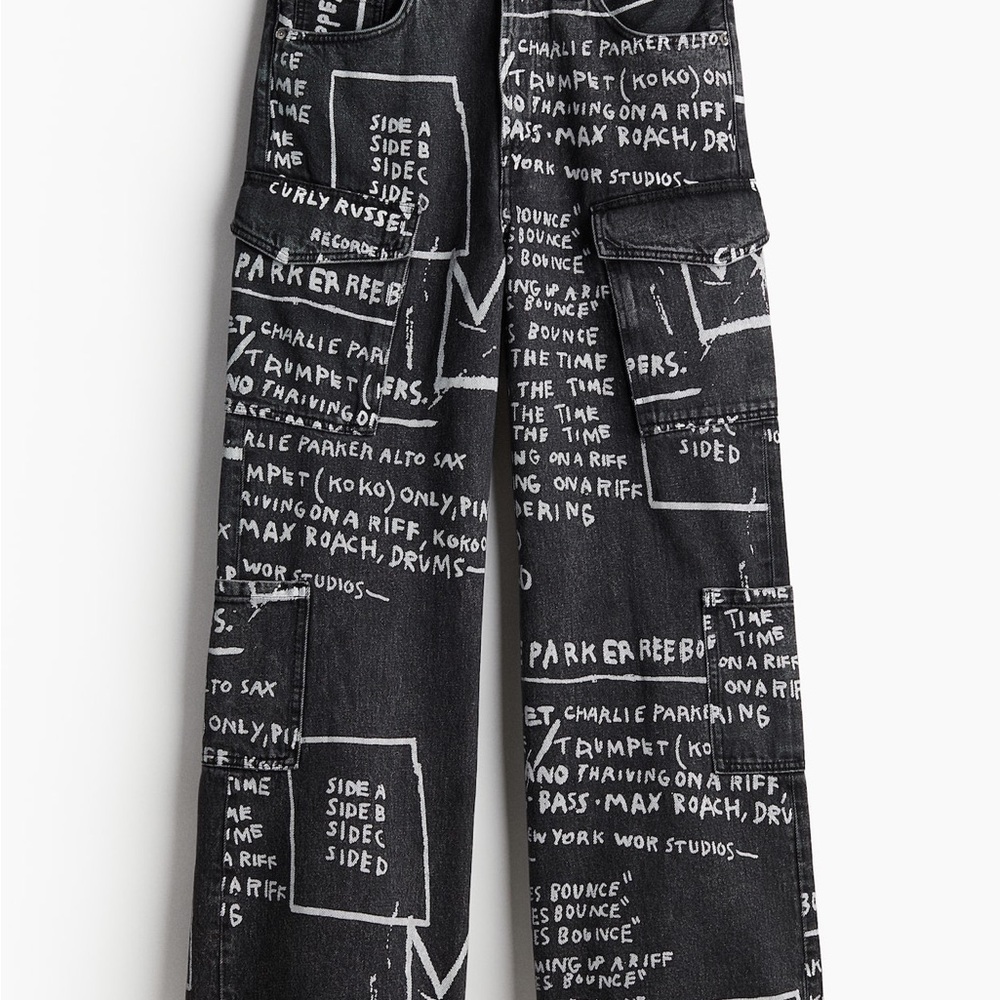 CE
IME
TIME
ME
IME
SIDE A
SIDE B
SIDE C
SIDE D
CURLY RUSSEL
RECORDED
PARKER REEB
ET CHARLIE PAR
TRUMPET (
NO THRIVING ON
ERS.
RLIE PARKER ALTO SAX
MPET (KOKO) ONLY, PIA
RIVING ON A RIFF, KOKO
X MAX ROACH, DRUMS—
WOR STUDIOS—
S.
LTO SAX
ONLY, PI
SIDE A
SIDE B
SIDE C
SIDE D
TIME
ME
IME
A RIFF
A RIFF
G
T, CHARLIE PARKER ALTO S
TRUMPET (KOKO) ONL
NO THRIVING ON A RIFF,
BASS · MAX ROACH, DRU
YORK WOR STUDIOS—
S BOUNCE"
S BOUNCE"
S BOUNCE"
ING UP A RIF
S BOUNCE"
S BOUNCE
THE TIME
THE TIME
THE TIME
THE TIME
NG ON A RIFF
NG ON A RIFF
DERING
D
PERS.
SIDE D
PARKER REEBO
ET, CHARLIE PARKE
TRUMPET (KO
ANO THRIVING ON A RIFF,
· BASS · MAX ROACH, DRU
EW YORK WOR STUDIOS—
ES BOUNCE"
ES BOUNCE"
ES BOUNCE"
MING UP A RIFF
ES BOUNCE"
E TIME
E TIME
E TIME
ON A RIFF
ON A RIF
RING